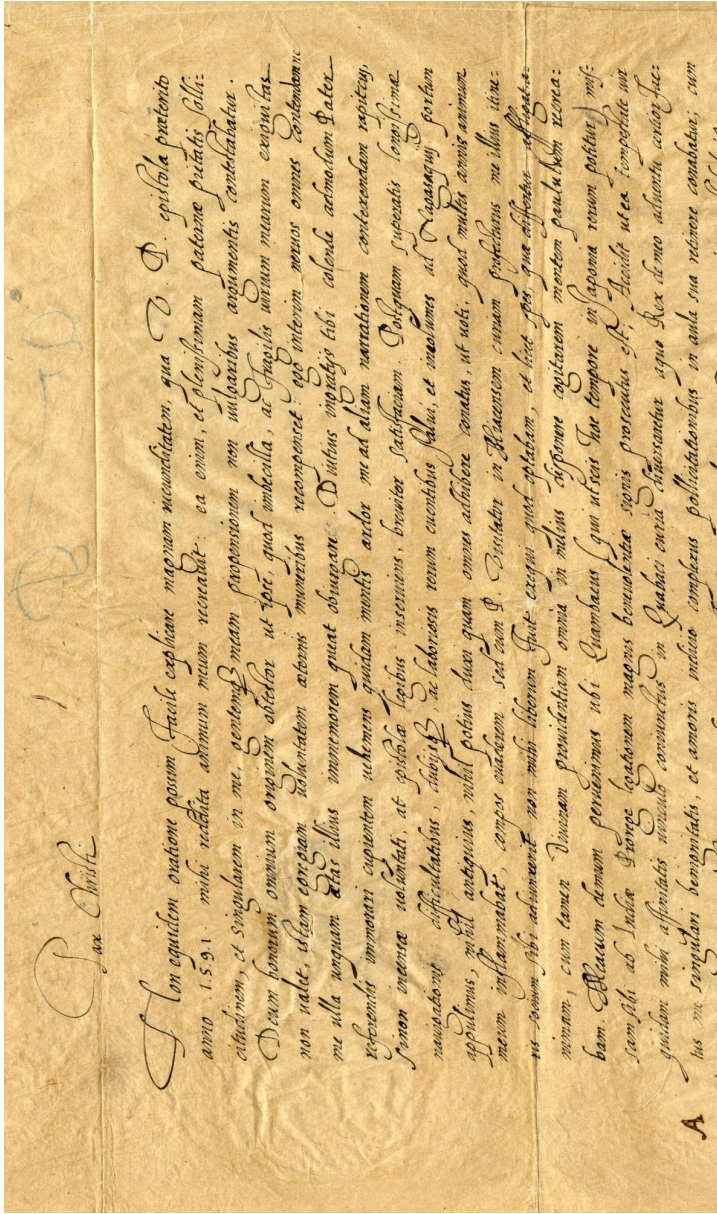 Pax Christi
Non equidem oratione possum facile explicare magnam iucunditatem, qua V. P. epistola præterito
anno 1591. mihi reddita animum meum recreauit. ea enim, et plenissimam paternæ pietatis solli:
citudinem, et singularem in me, gentemq; meam propensionem non uulgaribus argumentis contestabatur.
Deum bonorum omnium originem obtestor ut ipse, quod imbecilla, ac fragilis uirium mearum exiguitas
non ualet, istam egregiam uoluntatem æternis muneribus recompenset: ego interim neruos omnes contendam ne
me ulla unquam ætas illius immemorem queat obiurgare. Diutius in tibi colende admodum Pater
referendis immorari cupientem uehemens quidam mentis ardor me ad aliam narrationem contexendam rapit cui,
si non ingenti uoluntati, at epistolæ legibus inseruiens, breuiter satisfaciam. Postquam superatis longissimæ
nauigationis difficultatibus, dubijsq;, ac laboriosis rerum euentibus salui, et incolumes ad Nagasaquij portum
appulimus, nihil antiquius, nihil potius duxi quam omnes adhibere conatus, ut uoti, quod multis annis animum
meum inflammabat, compos euaderem. sed cum P. Visitator in Meacensem curiam profecturus me illius itine:
ris socium sibi adiunxerit non mihi liberum fuit exequi quod optabam, et licet spes, quæ differtur affligat a:
nimam, cum tamen Diuinam prouidentiam omnia in melius disponere cogitarem mentem paululum recrea:
bam. Meacum demum peruenimus ubi Quambacus (qui ut scis hoc tempore in Iaponia rerum potitur) mis:
sam sibi ab Indiæ Prorege legationem magnis beneuolentiæ signis prosecutus est. Accidit ut ea tempestate uir
quidam mihi affinitatis uinculo coniunctus in Quabaci curia diuersaretur a quo Rex de meo aduentu certior fac:
tus me singulari benignitatis, et amoris indicio complexus pollicitationibus in aula sua retinere conabatur; cum
A